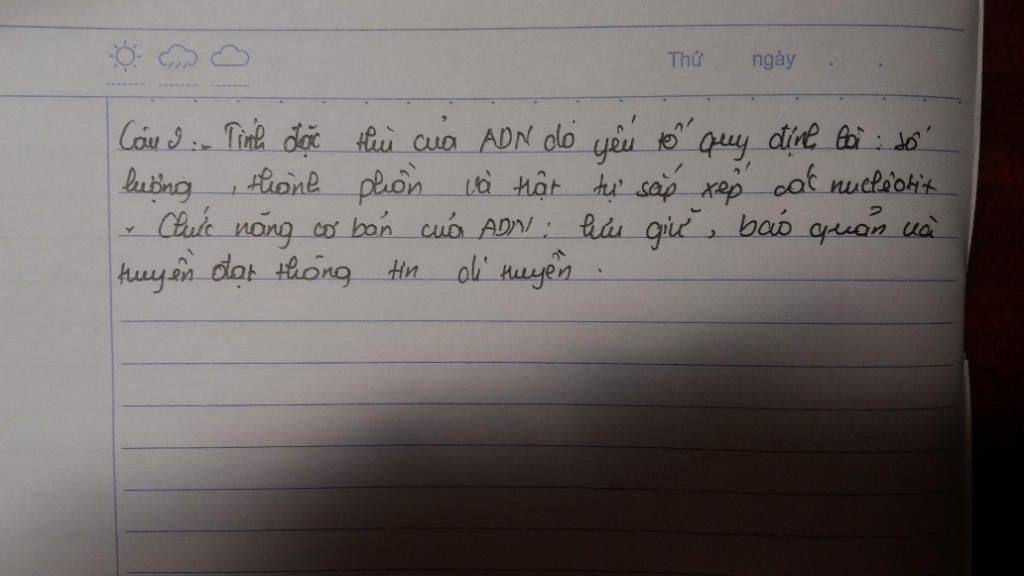 Thứ ngày . .
Câu 2: - Tính đặc thù của ADN do yếu tố quy định bởi: số
lượng, thành phần và trật tự sắp xếp các nucleotit
- Chức năng cơ bản của ADN: lưu giữ, bảo quản và
truyền đạt thông tin di truyền.